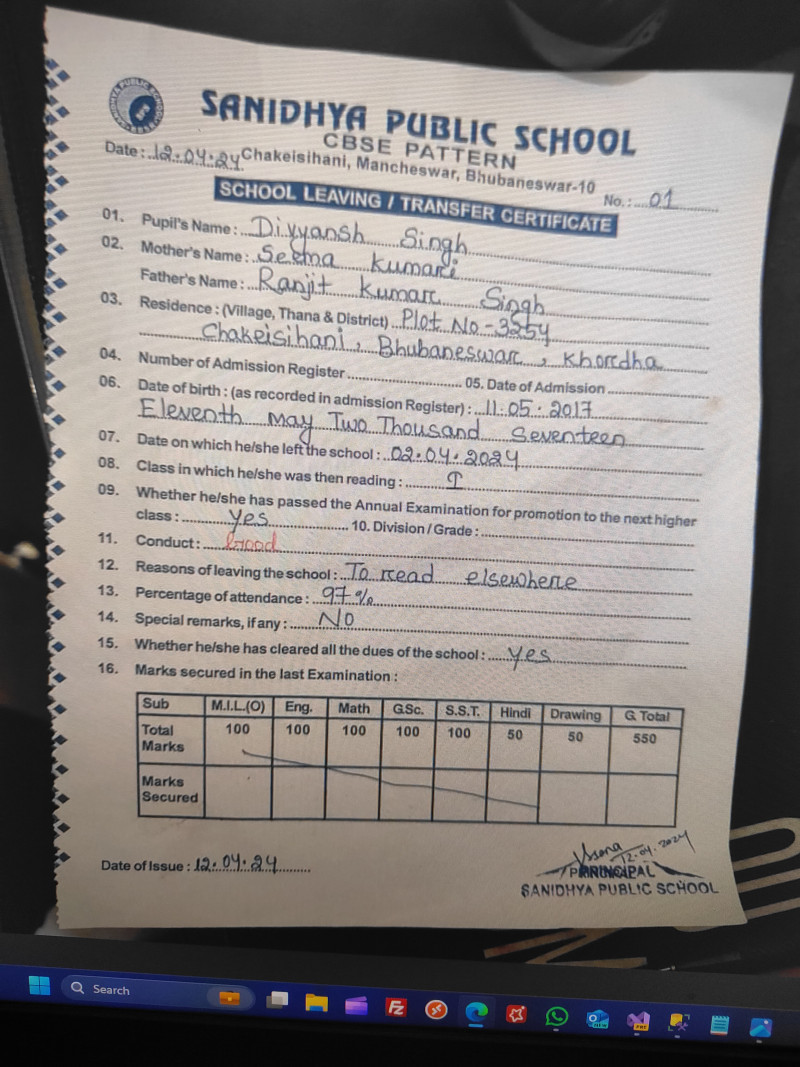 SANIDHYA PUBLIC SCHOOL
CBSE PATTERN
Date : 12.04.24 Chakeisihani, Mancheswar, Bhubaneswar-10
No. : 01
SCHOOL LEAVING / TRANSFER CERTIFICATE
01. Pupil's Name : Divyansh Singh
02. Mother's Name : Seema Kumari
Father's Name : Ranjit Kumar Singh
03. Residence : (Village, Thana & District) Plot No - 3254
Chakeisihani, Bhubaneswar, Khordha
04. Number of Admission Register 05. Date of Admission
06. Date of birth : (as recorded in admission Register) : 11.05.2017
Eleventh May Two Thousand Seventeen
07. Date on which he/she left the school : 02.04.2024
08. Class in which he/she was then reading : I
09. Whether he/she has passed the Annual Examination for promotion to the next higher
class : Yes 10. Division / Grade :
11. Conduct : Good
12. Reasons of leaving the school : To read elsewhere
13. Percentage of attendance : 97%
14. Special remarks, if any : No
15. Whether he/she has cleared all the dues of the school : Yes
16. Marks secured in the last Examination :
Sub M.I.L.(O) Eng. Math G.Sc. S.S.T. Hindi Drawing G. Total
Total Marks 100 100 100 100 100 50 50 550
Marks Secured
Date of Issue : 12.04.24
12.04.2024
PRINCIPAL
SANIDHYA PUBLIC SCHOOL
Search